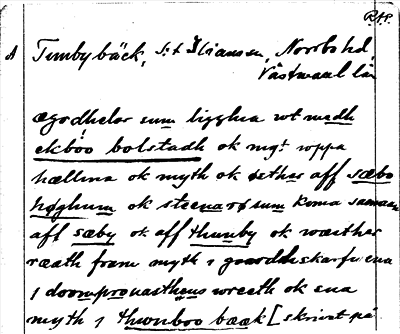 RAP.
A Tunbybäck, S:t Ilianssn, Norrbo hd
Västmanl. län
ægodhelar sum liggha vt medh
ekböo bolstadh ok myt vppa
hællina ok myth ok sethær aff sæbo
høghum ok steenarøsum koma saman
aff sæby ok aff thunby ok wæsthær
ræath fram myth i gardhskarfuena
i doomprouasthens wreeth ok ena
myth i thwnboo bæk [skrivet på